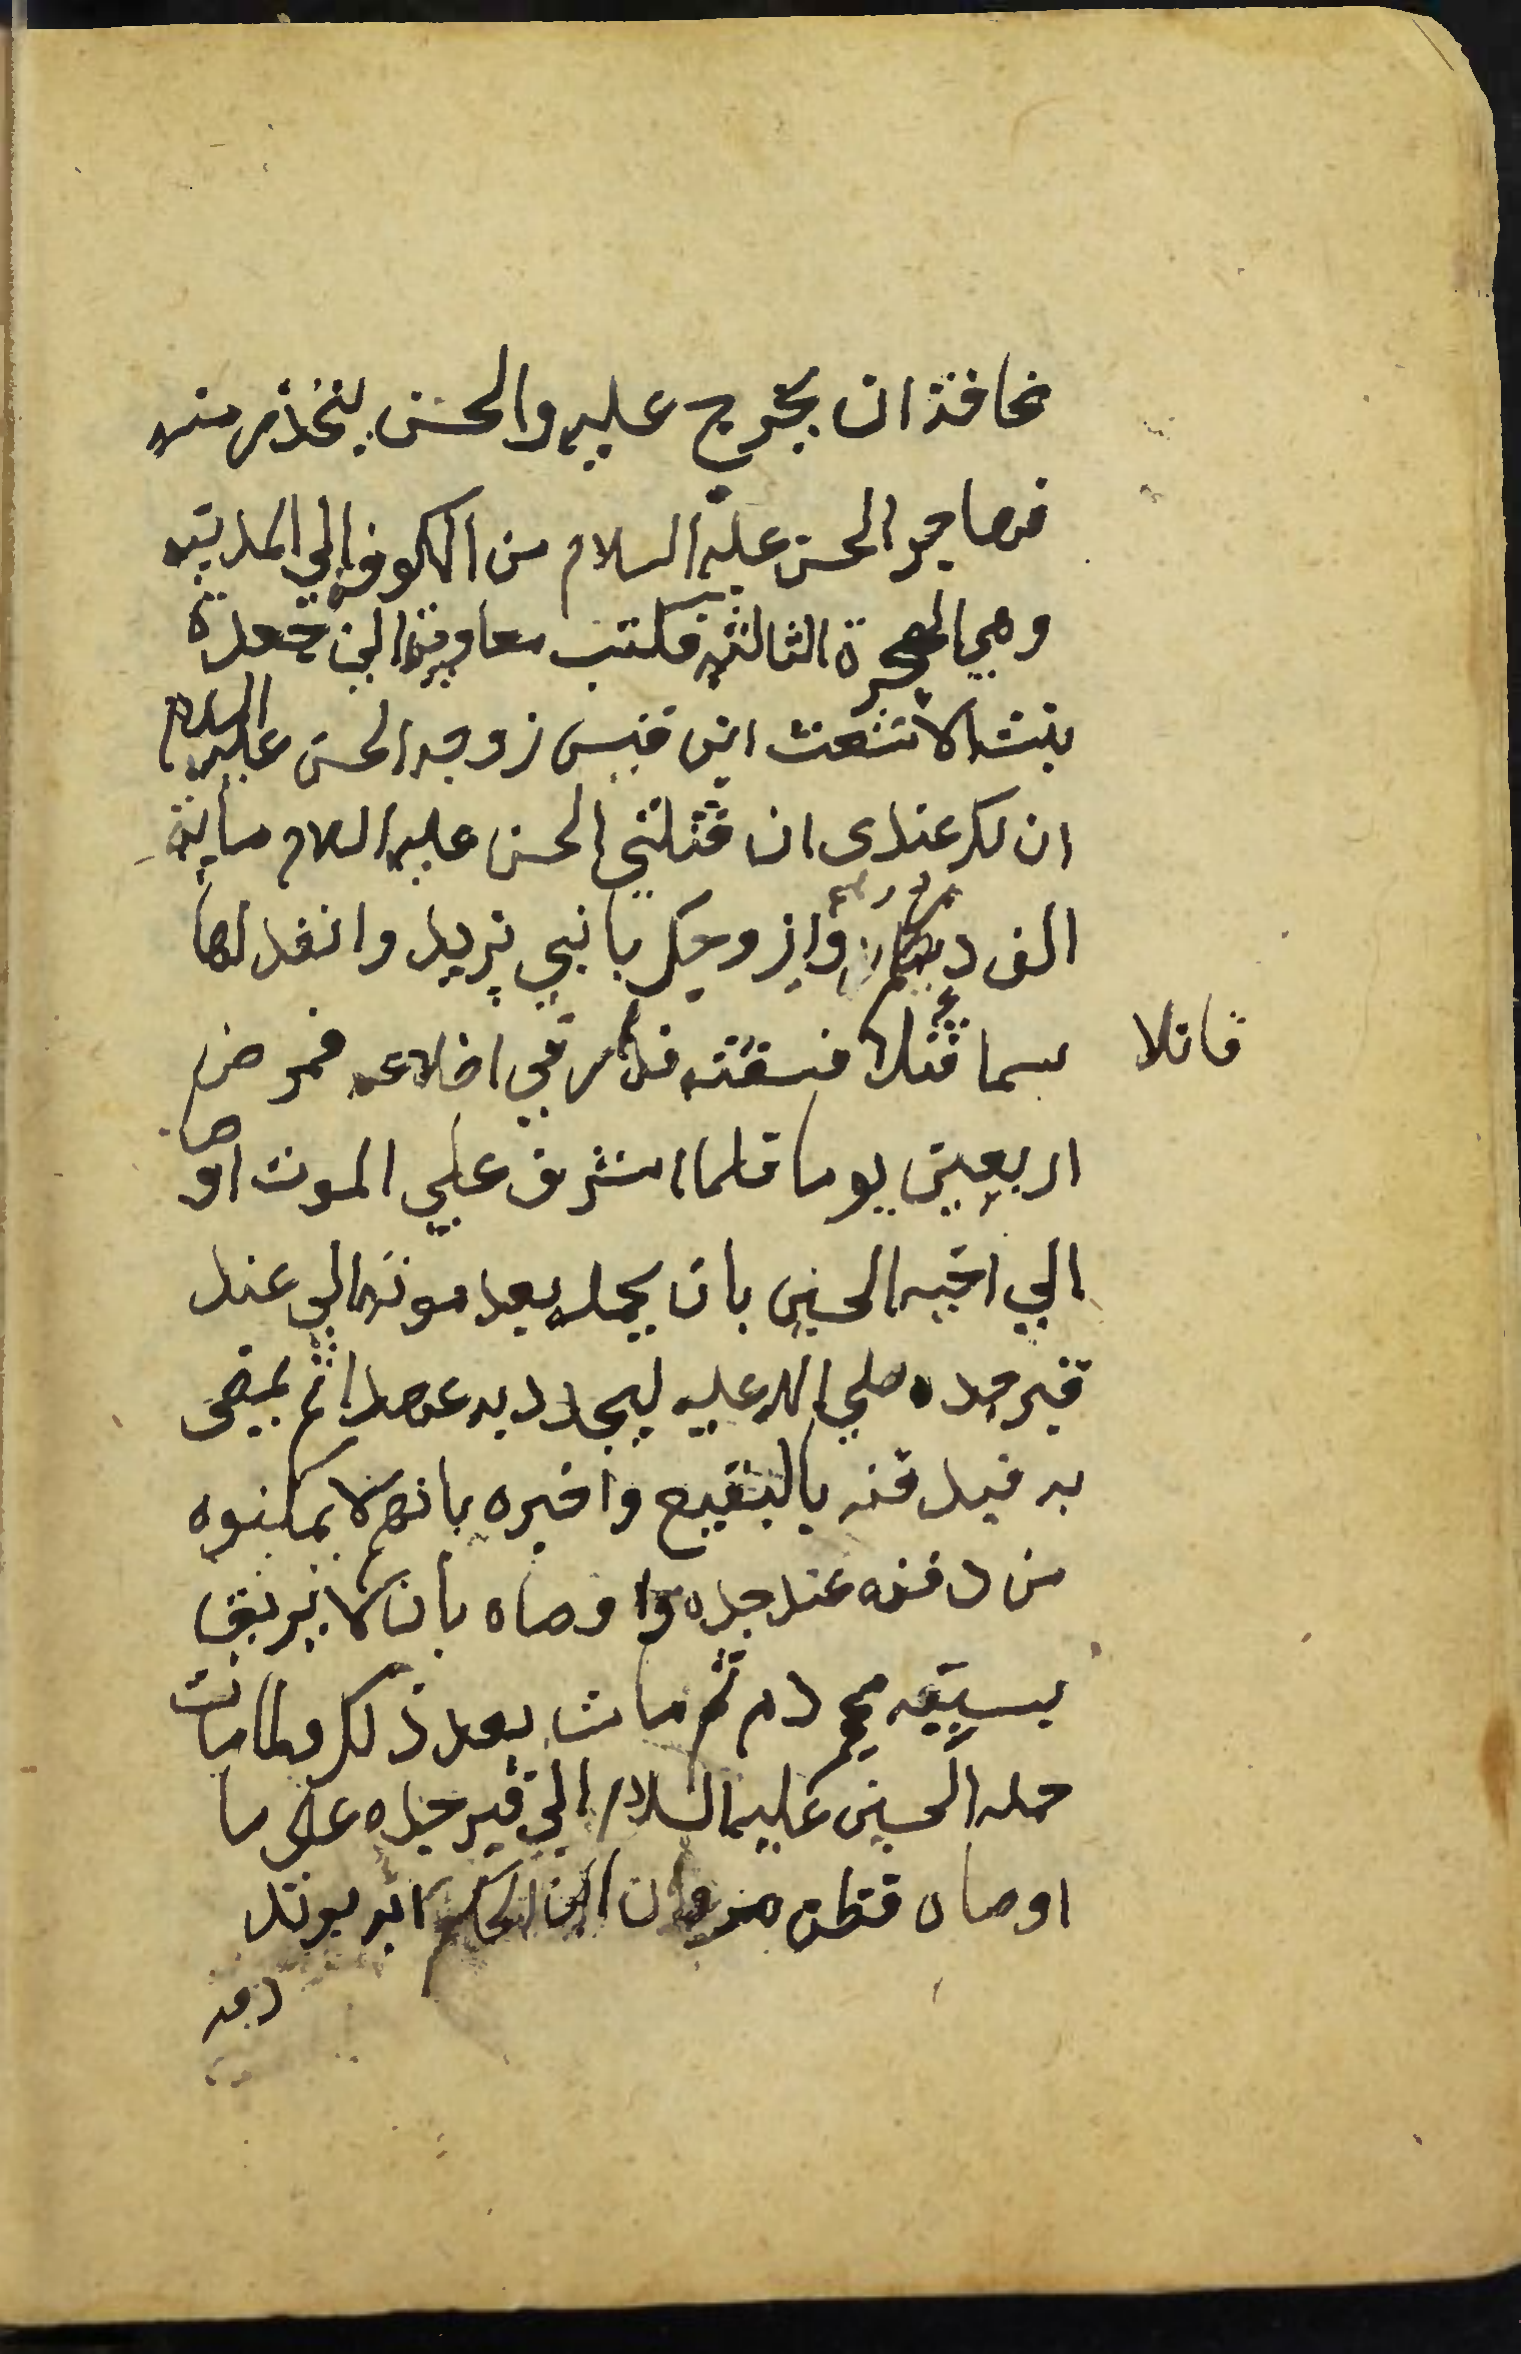 مخافة ان يخرج عليه والحسن يتحذر منه
فهاجر الحسن عليه السلام من الكوفه الي المدينه
وهي الهجرة الثالثه فكتب معاوية الي جعدة
بنت الاشعث ابن قيس زوجه الحسن عليه السلام
ان لك عندي ان قتلتي الحسن عليه السلام ماية
الف درهم وازوجك بابني يزيد وانفد لها
سما قتلا فسقته فذار في اضلاعه فمرض
قاتلا
اربعين يوما فلما اشرف علي الموت اوصا
الي اخيه الحسين بان يحمله بعد موته الي عند
قبر جده صلي الله عليه ليجدد به عهدا ثم يمضى
به فيدفنه بالبقيع واخبره بانهم لا يمكنوه
من دفنه عند جده واوصاه بان لا يريق
بسببه محجر دم ثم مات بعد ذلك ولما مات
حمله الحسين عليهما السلام الي قبر جده على ما
اوصاه فظن مروان ابن الحكم انه يريد
دفنه